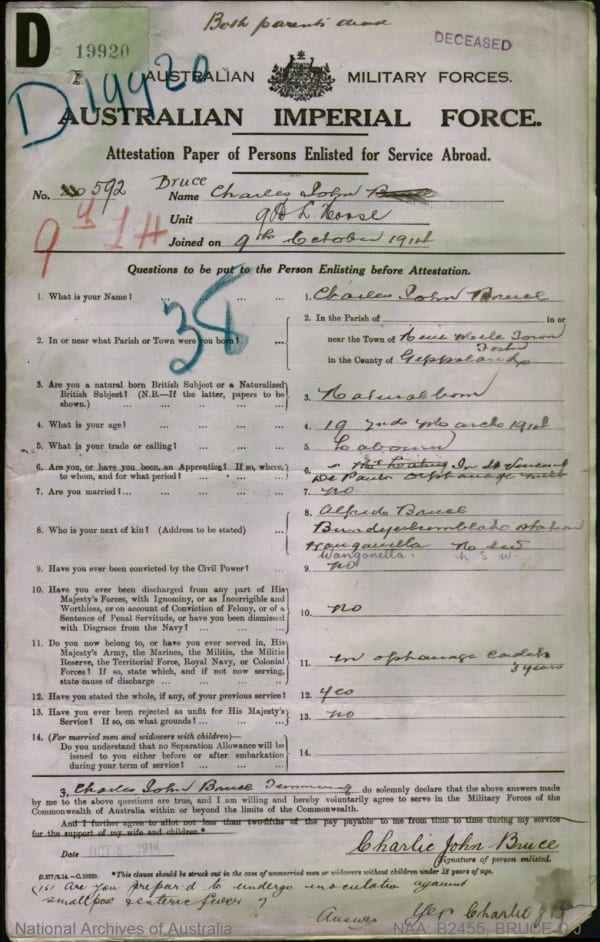 Both parents dead
D
19920
DECEASED
D 19920
AUSTRALIAN MILITARY FORCES.
AUSTRALIAN IMPERIAL FORCE.
Attestation Paper of Persons Enlisted for Service Abroad.
No. 592 Bruce Name Charles John Bruce
Unit 9th L. Horse
Joined on 9th October 1914
9th LH
Questions to be put to the Person Enlisting before Attestation.
38
1. What is your Name? ... ... ... ... 1. Charles John Bruce
2. In or near what Parish or Town were you born? ... 2. In the Parish of in or
near the Town of
in the County of Gippsland
3. Are you a natural born British Subject or a Naturalized
British Subject? (N.B.—If the latter, papers to be
shown.) ... ... ... ... 3. Natural born
4. What is your age? ... ... ... ... 4. 19 March 1914
5. What is your trade or calling? ... ... ... 5. Labourer
6. Are you, or have you been, an Apprentice? If so, where,
to whom, and for what period? ... ... ... 6. In St Vincent
De Pauls Orphanage
7. Are you married? ... ... ... ... 7. no
8. Who is your next of kin? (Address to be stated) ... 8. Alfred Bruce
Station
Wanganella
Wanganella. N S W.
9. Have you ever been convicted by the Civil Power? ... 9. no
10. Have you ever been discharged from any part of His
Majesty's Forces, with Ignominy, or as Incorrigible and
Worthless, or on account of Conviction of Felony, or of a
Sentence of Penal Servitude, or have you been dismissed
with Disgrace from the Navy? ... ... ... 10. no
11. Do you now belong to, or have you ever served in, His
Majesty's Army, the Marines, the Militia, the Militia
Reserve, the Territorial Force, Royal Navy, or Colonial
Forces? If so, state which, and if not now serving,
state cause of discharge ... ... ... 11. in orphanage Cadets
3 years
12. Have you stated the whole, if any, of your previous service? 12. yes
13. Have you ever been rejected as unfit for His Majesty's
Service? If so, on what grounds? ... ... ... 13. no
14. (For married men and widowers with children)—
Do you understand that no Separation Allowance will be
issued to you either before or after embarkation
during your term of service? ... ... ... 14.
I, Charles John Bruce do solemnly declare that the above answers made
by me to the above questions are true, and I am willing and hereby voluntarily agree to serve in the Military Forces of the
Commonwealth of Australia within or beyond the limits of the Commonwealth.
And I further agree to allot not less than two-fifths of the pay payable to me from time to time during my service
for the support of my wife and children.*
Date OCT 8 1914 Charlie John Bruce
Signature of person enlisted.
D.377/8.14.—C.10920. *This clause should be struck out in the case of unmarried men or widowers without children under 18 years of age.
(15) Are you prepar'd to undergo inoculation against
smallpox & enteric fever ?
Answer Yes Charlie J B
National Archives of Australia NAA: B2455, BRUCE C J